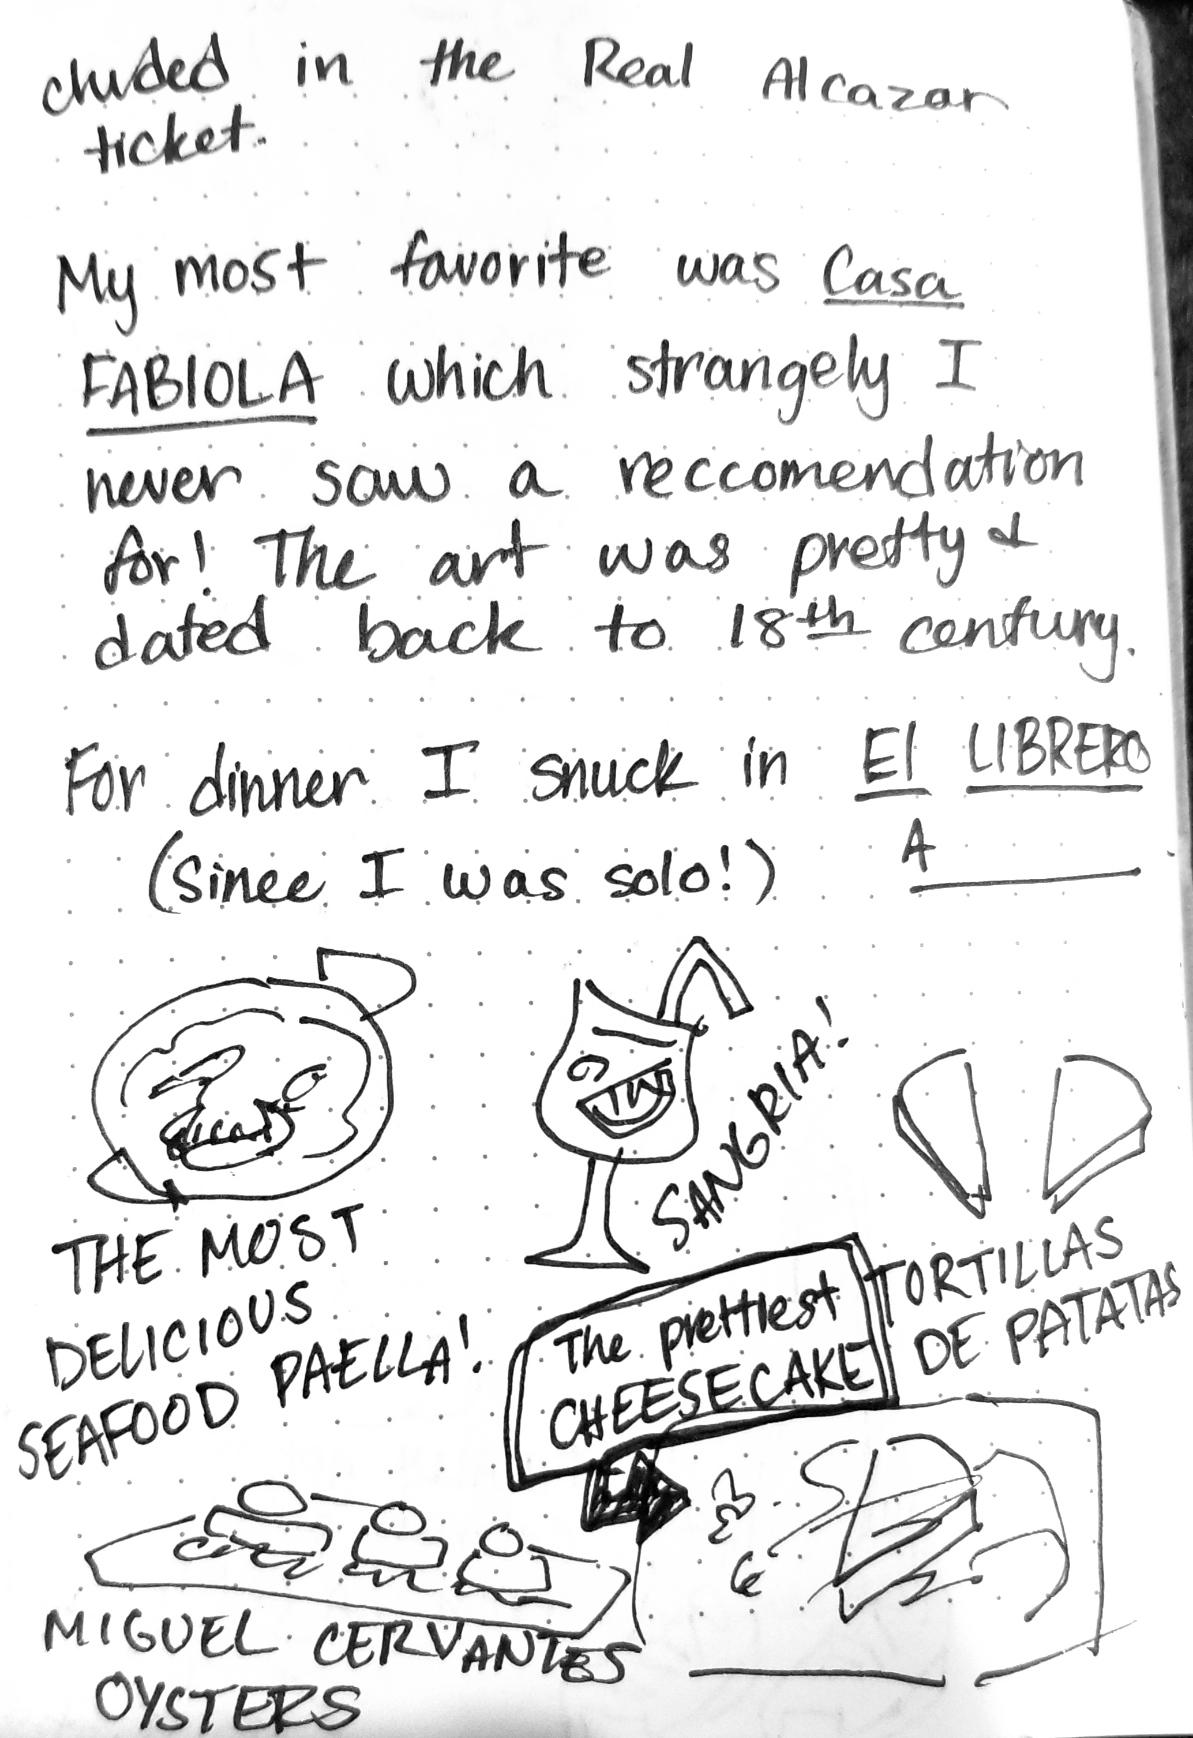 cluded in the Real Alcazar
ticket.
My most favorite was Casa
FABIOLA which strangely I
never saw a reccomendation
for! The art was pretty &
dated back to 18th century.
For dinner I snuck in El LIBRERO
(Since I was solo!) A
SANGRIA!
THE MOST
DELICIOUS
SEAFOOD PAELLA!
TORTILLAS
DE PATATAS
The prettiest
CHEESECAKE
MIGUEL CERVANTES
OYSTERS